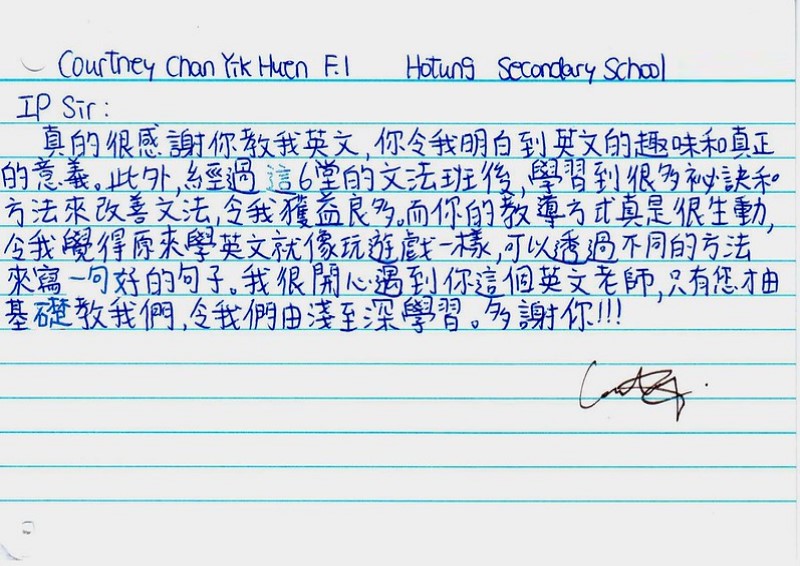 Courtney Chan Yik Huen F.1 Hotung Secondary School
IP Sir:
真的很感謝你教我英文,你令我明白到英文的趣味和真正
的意義。此外,經過這6堂的文法班後,學習到很多祕訣和
方法來改善文法,令我獲益良多。而你的教導方式真是很生動,
令我覺得原來學英文就像玩遊戲一樣,可以透過不同的方法
來寫一句好的句子。我很開心遇到你這個英文老師,只有您才由
基礎教我們,令我們由淺至深學習。多謝你!!!